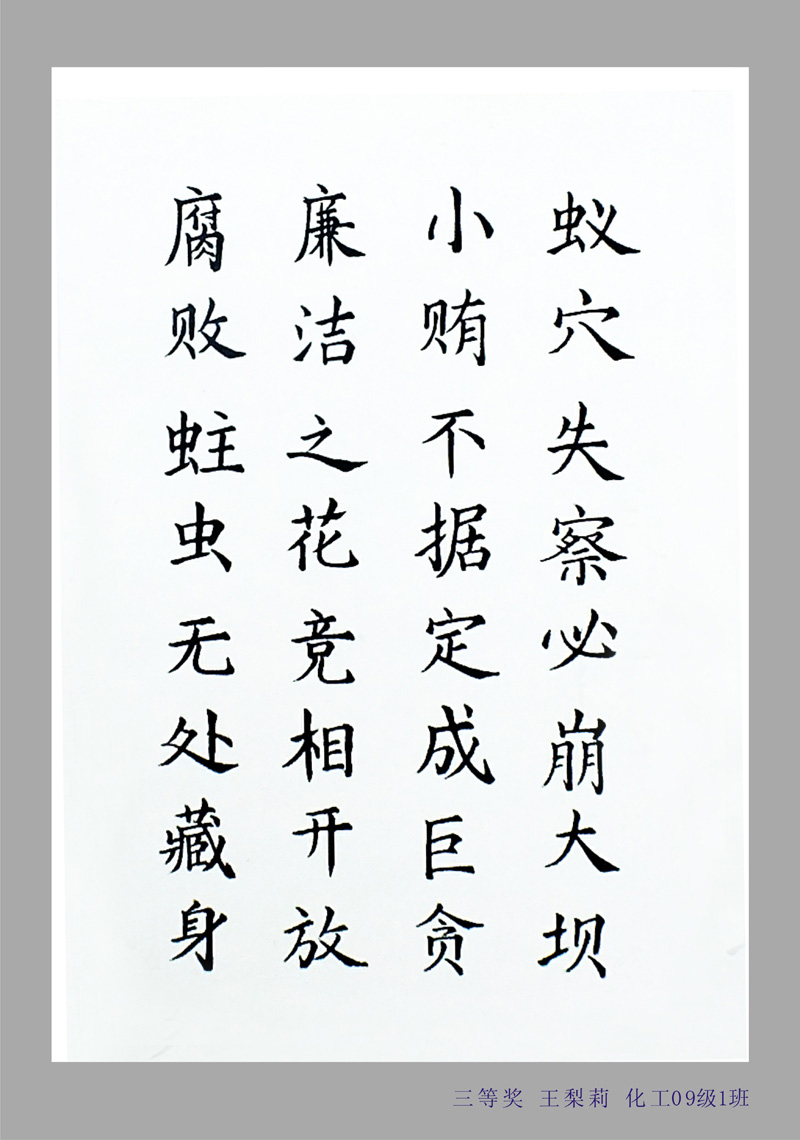 蚁穴失察必崩大坝
小贿不据定成巨贪
廉洁之花竞相开放
腐败蛀虫无处藏身
三等奖 王梨莉 化工09级1班